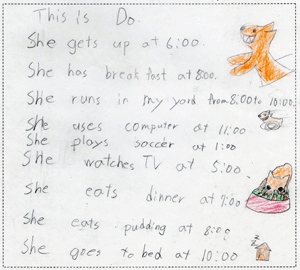 This Is Do.
She gets up at 6:00.
She has breakfast at 8:00.
She runs in my yard from 8:00 to 10:00.
She uses computer at 11:00
She plays soccer at 1:00
She watches TV at 5:00.
She eats dinner at 7:00
She eats pudding at 8:00
She goes to bed at 10:00
zz